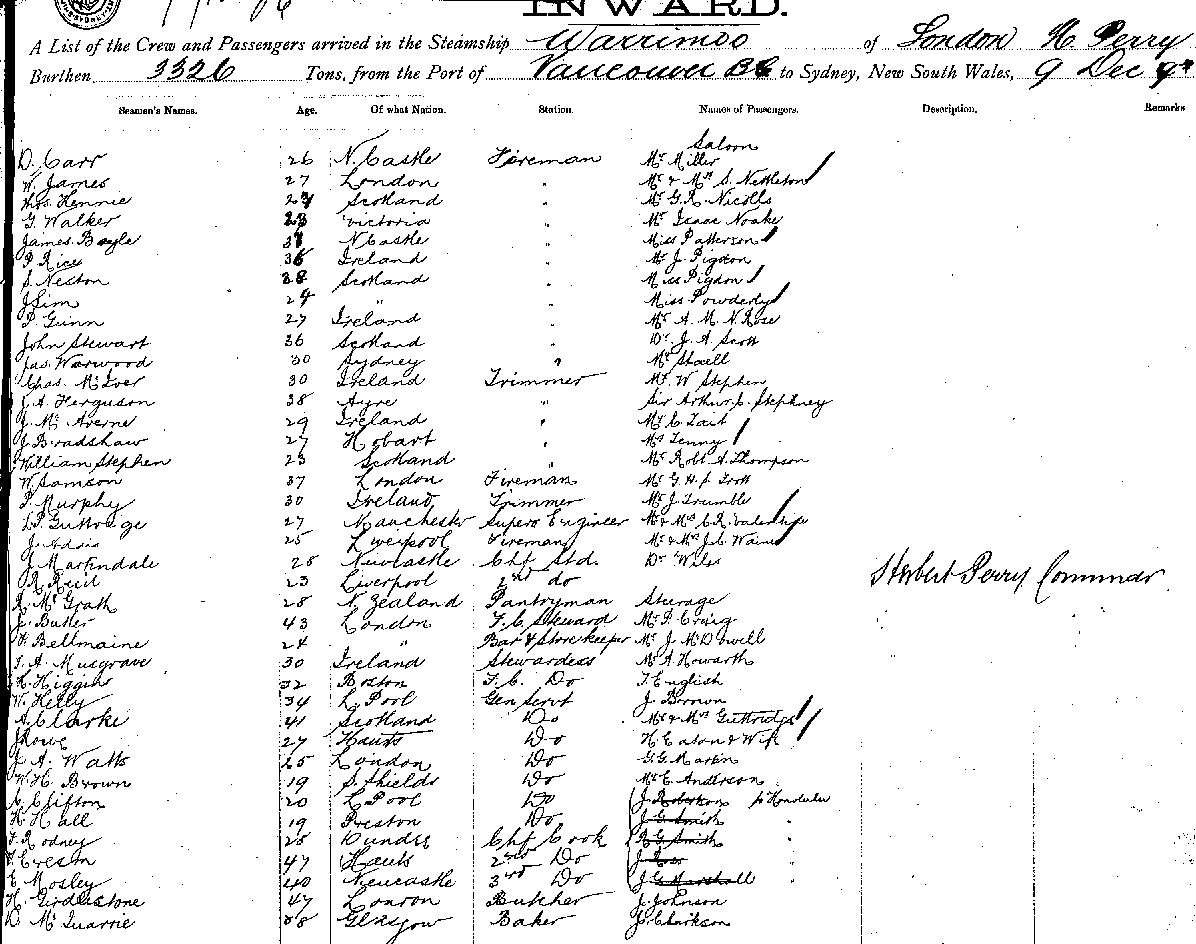 INWARD.
A List of the Crew and Passengers arrived in the Steamship Warrimoo of London H. Perry
Burthen 3326 Tons, from the Port of Vancouver BC to Sydney, New South Wales, 9 Dec
Seamen's Names. Age. Of what Nation. Station. Names of Passengers. Description. Remarks
Saloon
D. Carr 26 N. Castle Fireman Mr Miller
W. James 27 London " Mr & Mrs S. Nettleton
Thos. Rennie Scotland " Mr G.R. Nicolls
G. Walker Victoria " Mr Isaac Noake
James Boyle N Castle " Miss Patterson
P. Rice Ireland " Mr J. Pigdon
S. Neston 38 Scotland " Miss Pigdon
J Sim 24 " " Miss Powderly
P. Gunn 27 Ireland " Mr A. M. N. Rose
John Stewart 36 Scotland " Dr. J. A. Scott
Jas. Warwood 30 Sydney " Mr
Chas. McIver 30 Ireland Trimmer Mr. W Stephen
J. A. Ferguson 38 Ayre " Sir Arthur Stephney
J. Mc Averne 29 Ireland " Mr C. Tait
J Bradshaw 27 Hobart " Mr Tenny
William Stephen 23 Scotland " Mr Robt A. Thompson
W. Samson 37 London Fireman Mr G. H. S. Trott
P. Murphy 30 Ireland Trimmer Mr J. Trumble
Guttridge 27 Manchester Supero Engineer Mr & Mrs C. R.
J. 25 Liverpool Fireman Mr & Mrs J. C.
J Martindale 28 Newcastle Chf Std. Dr Wiles
R. Reid 23 Liverpool 2nd do Herbert Perry Commdr
R. McGrath 28 N. Zealand Pantryman Steerage
J. Butler 43 London F.C. Steward Mr P. Craig
Bellmaine 24 " Bar & Storekeeper Mr J. McDowell
F. A. Musgrave 30 Ireland Stewardess Mr A. Howarth
H. Higgins 32 Boston F.C. Do T. English
W. Kelly 34 L. Pool Gen Servt J. Brown
A. Clarke 41 Scotland Do Mr & Mrs Guttridge
J Rowe 27 Hants Do H. Eaton & Wife
J. A. Watts 25 London Do G. G. Martin
W. H. Brown 19 S. Shields Do Mr E. Anderson
C. Clifton 20 L Pool Do J. Robertson fr Honolulu
H. Hall 19 Preston Do J. G. Smith "
F. Rodney 28 Dundee Chf Cook R. G. Smith "
47 Hants 2nd Do J.
E. Mosley 40 Newcastle 3rd Do J. G. Marshall "
H. Girdlestone 47 London Butcher J. Johnson
D. McQuarrie 38 Glasgow Baker J. Clarkson